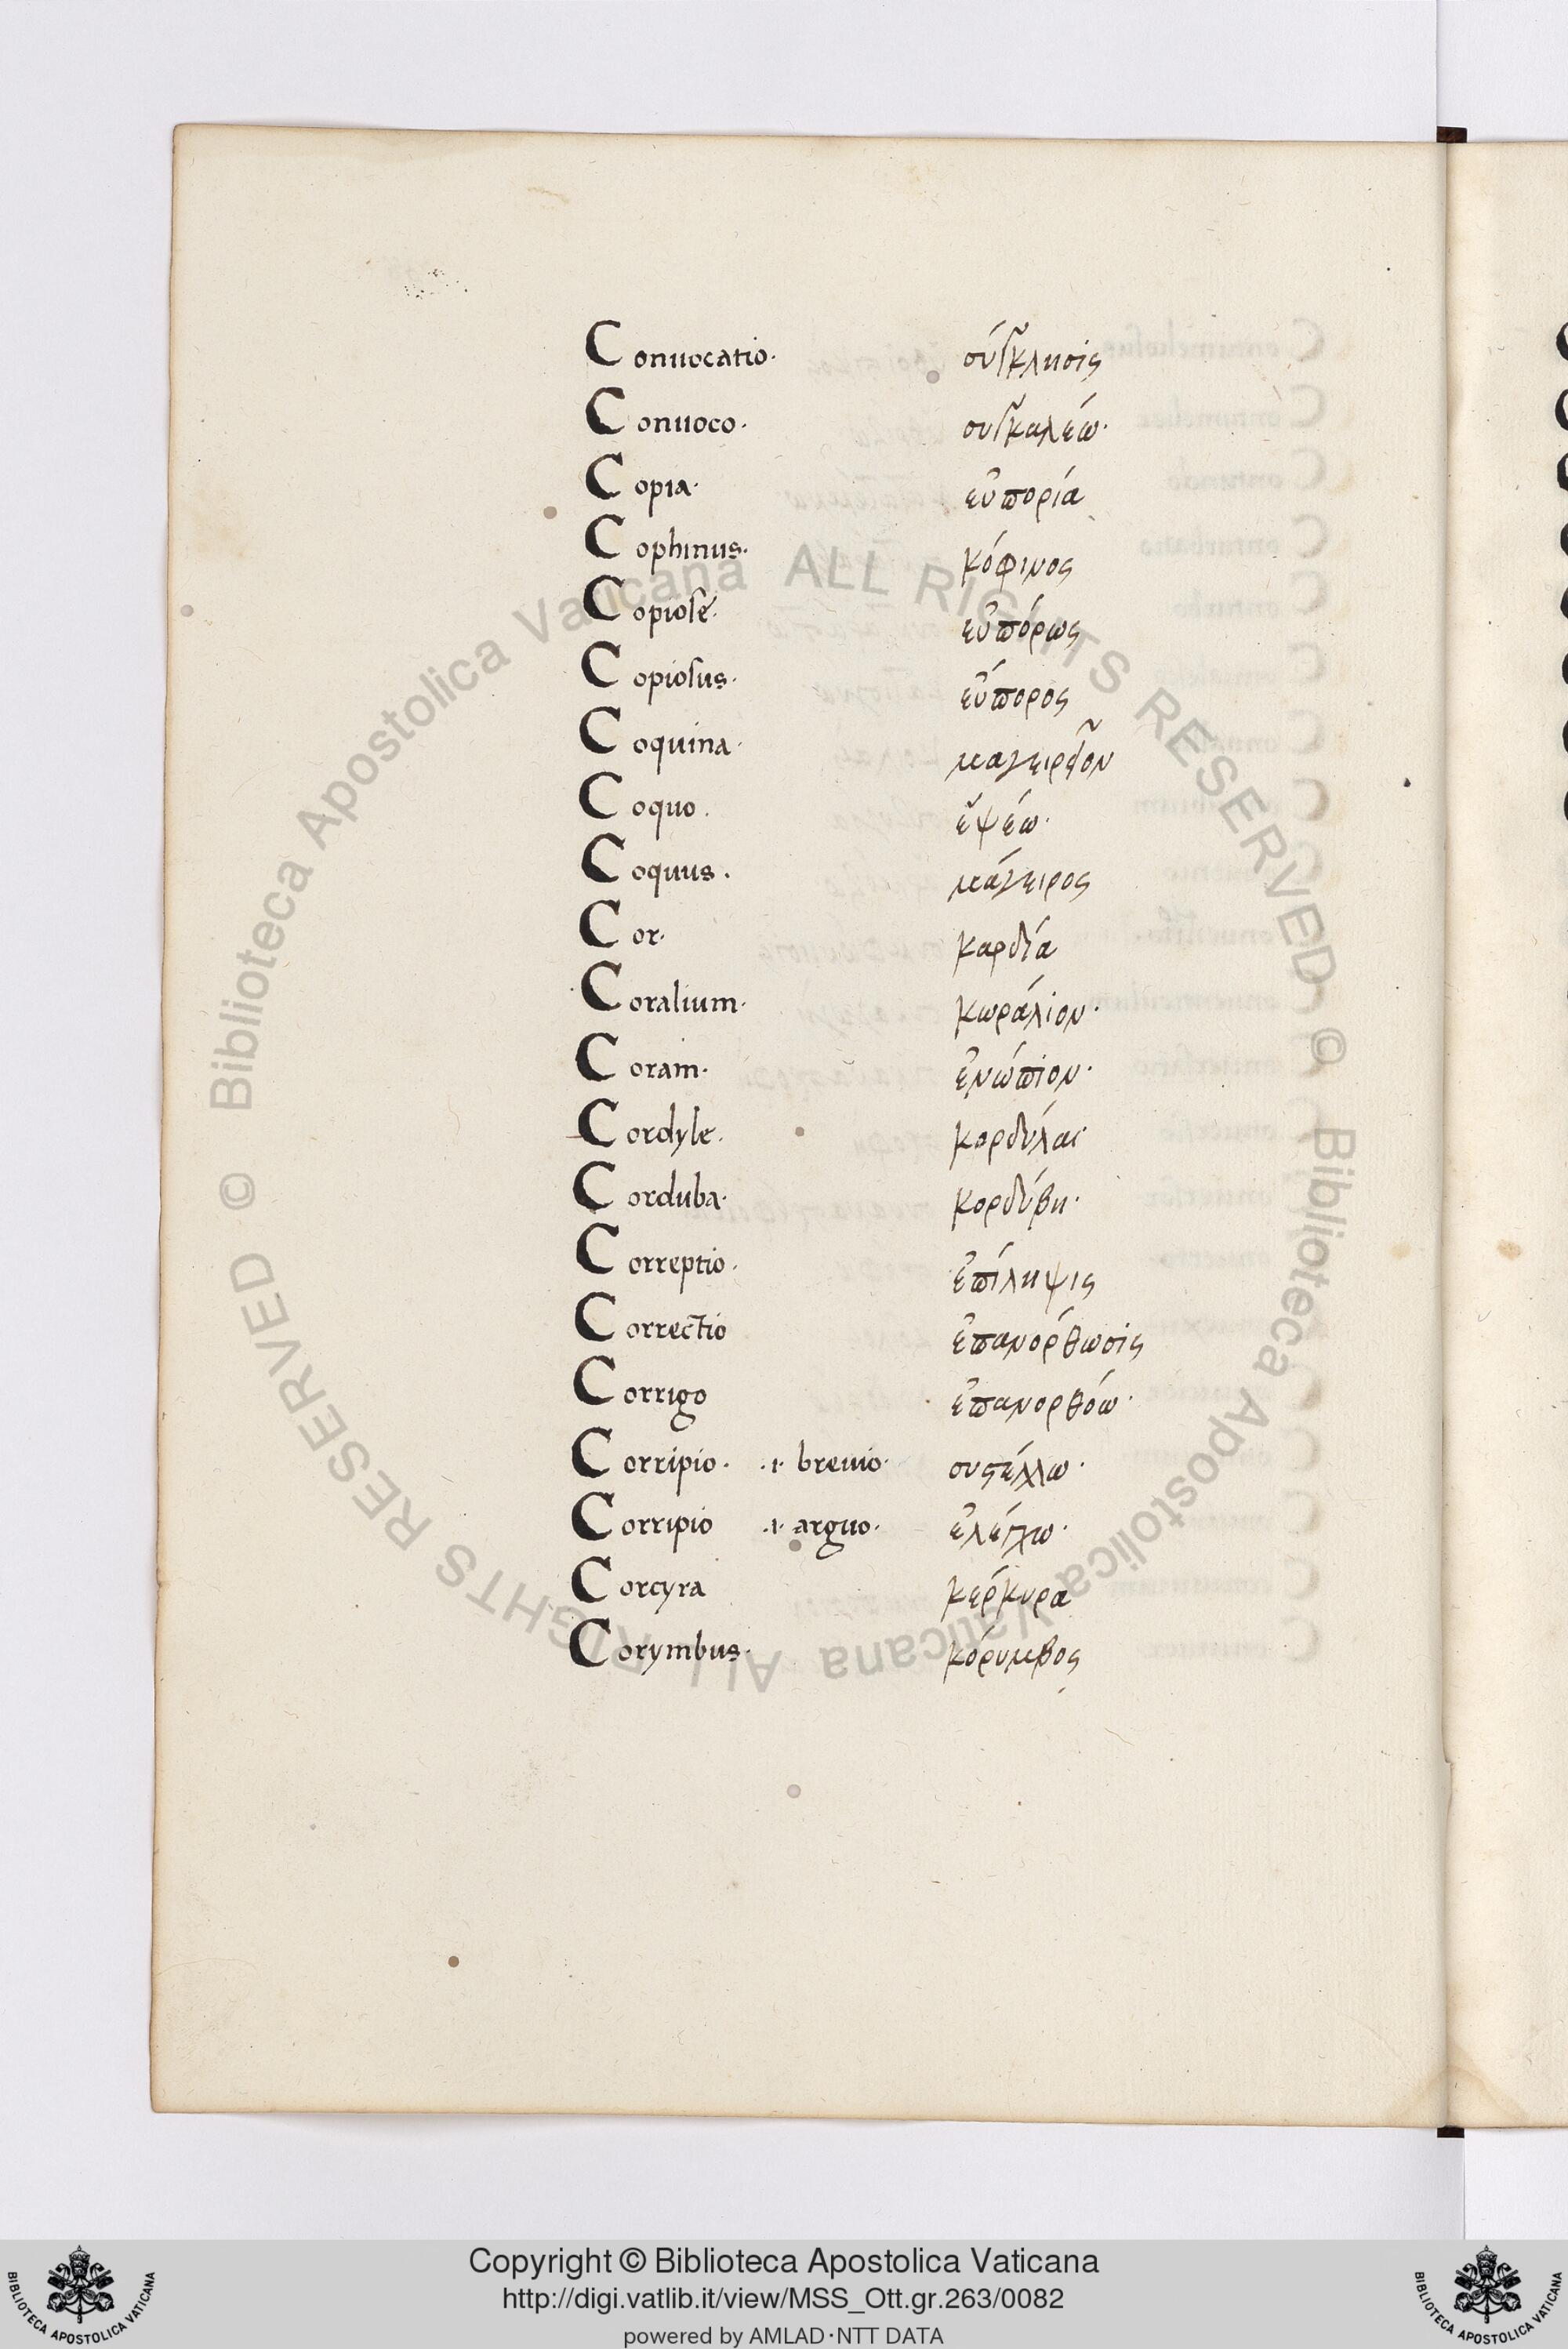 Conuocatio· σύγκλησις
Conuoco· συγκαλέω·
Copia· εὐπορία
Cophinus· κόφινος
Copiose· εὐπόρως
Copiosus· εὔπορος
Coquina· μαγειρεῖον
Coquo· ἕψέω·
Coquus· μάγειρος
Cor· καρδία
Coralium· κωράλιον·
Coram· ἐνώπιον·
Cordyle· κορδύλαι
Corduba· κορδύβη·
Correptio· ἐπίληψις
Correctio ἐπανόρθωσις
Corrigo ἐπανορθόω·
Corripio· ·i· breuio· συστέλλω·
Corripio ·i· arguo· ἐλέγχω·
Corcyra κέρκυρα
Corymbus· κόρυμβος
© Biblioteca Apostolica Vaticana ALL RIGHTS RESERVED © Biblioteca Apostolica Vaticana ALL RIGHTS RESERVED
Copyright © Biblioteca Apostolica Vaticana
http://digi.vatlib.it/view/MSS_Ott.gr.263/0082
powered by AMLAD·NTT DATA
BIBLIOTECA APOSTOLICA VATICANA
BIBLIOTECA APOSTOLICA VATICANA